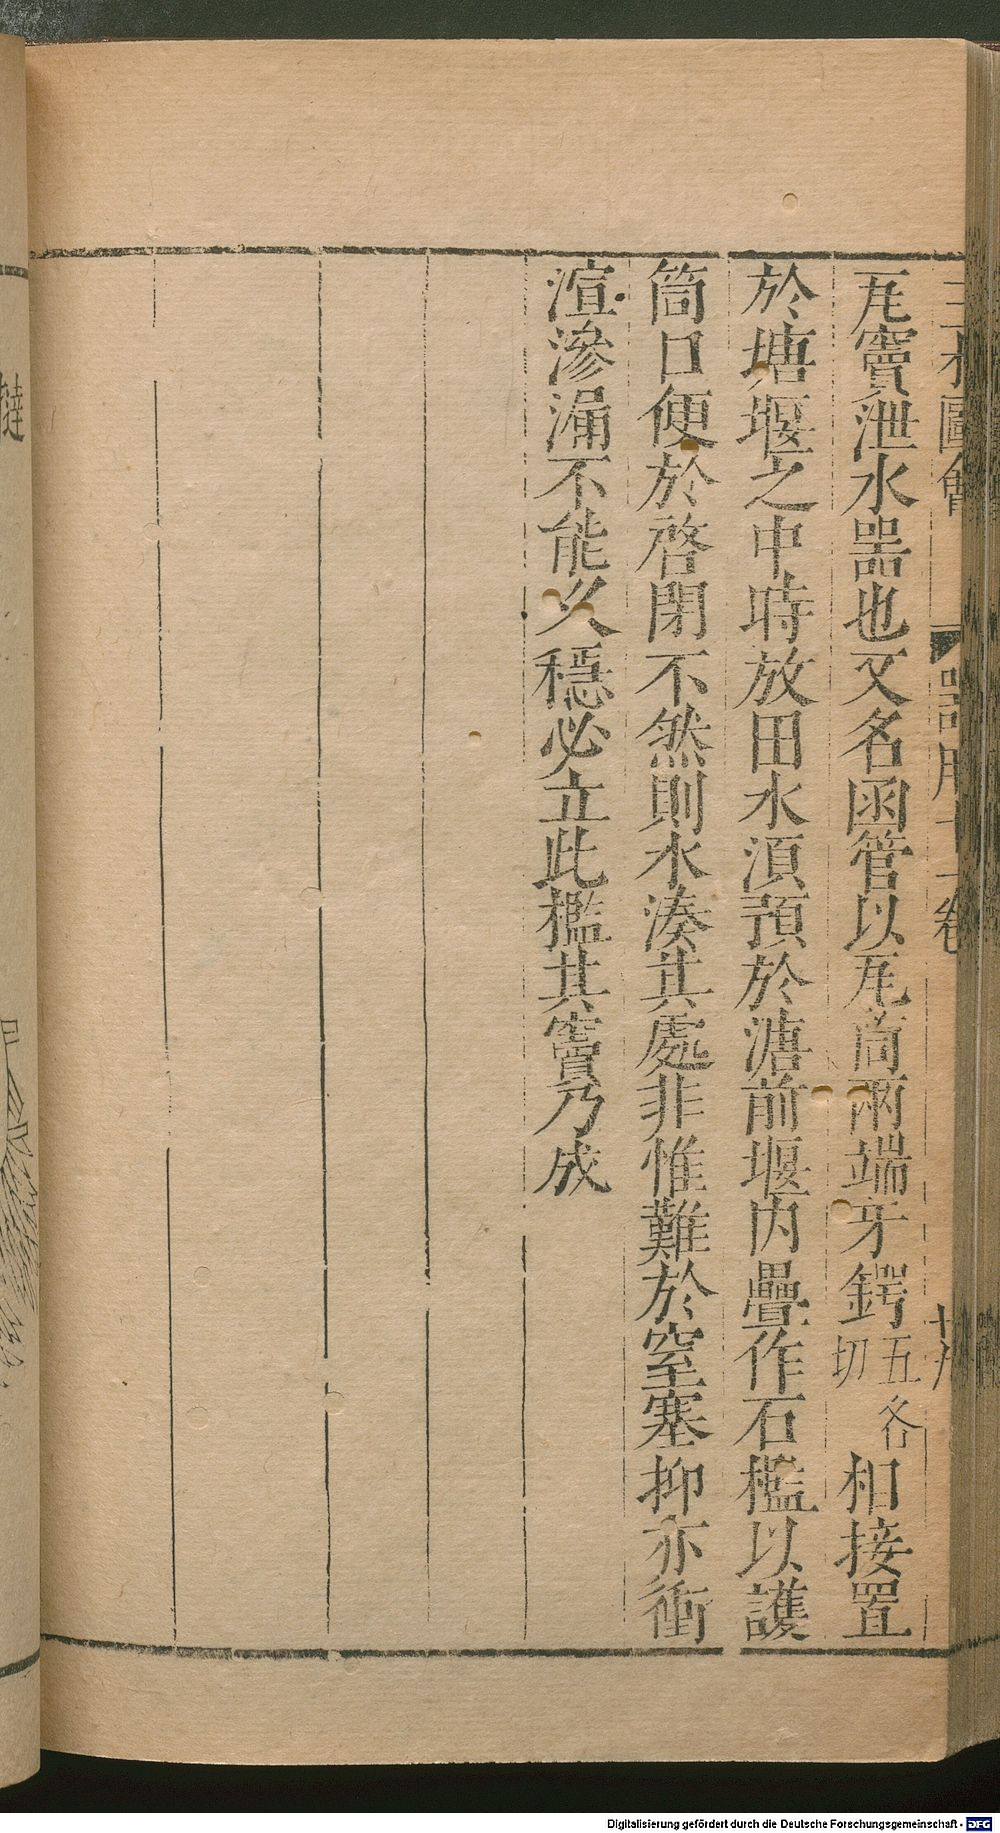 三才圖會
器用十一卷
十九
瓦竇泄水器也又名函管以瓦筒兩端牙鍔五各切相接置
於塘堰之中時放田水湏預於溏前堰内疊作石檻以護
筒口便於啓閉不然則水湊其處非惟難於窒塞抑亦衝
渲滲漏不能久穩必立此檻其竇乃成
撻
Digitalisierung gefördert durch die Deutsche Forschungsgemeinschaft - DFG